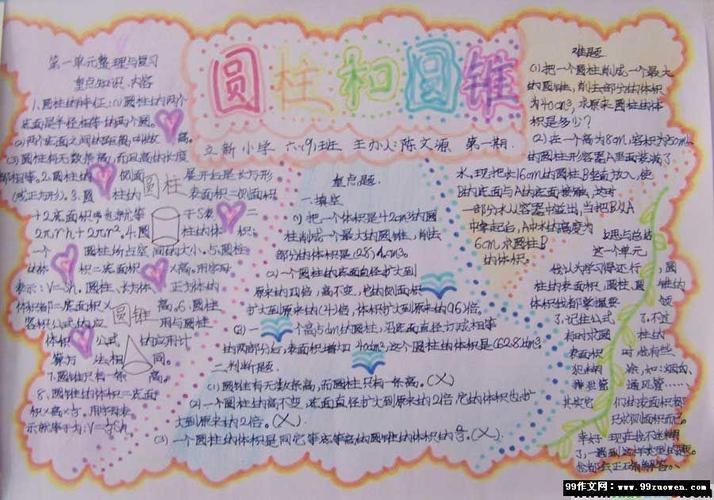 圆柱和圆锥
立新小学 六(9)班 主办人:陈文源 第一期
第一单元整理与复习
重点知识、内容
1.圆柱的特征:(1)圆柱的两个
底面是半径相等的两个圆。
(2)两个底面之间的距离叫做 高。
(3)圆柱有无数条高,而且高的长度
都相等。2.圆柱的 侧面
展开后是长方形
(或正方形)。3.圆 柱的
圆柱
表面积=侧面积
+2底面积
2πrh+2πr²。4.圆
柱的体
一个 圆柱所占空 间的大小。5.圆柱
体积 积=底面积 高,用字母
表示:V=Sh。圆柱、长方体 正方体的
体积都=底面积×高。6.圆
圆锥
容积公式的应 用与圆柱
体积 公式 的应用计
算方 法相 同。
7.圆锥只有一条 高。
8.圆锥的体积=底面
积×高×⅓。用字母表
示就等于为:V=⅓Sh
重点题.
一.填空
1)把一个体积是42cm³的圆
柱削成一个最大的圆锥,削去
部分的体积是(28)cm³。
(2)一个圆柱的底面直径扩大到
原来的4倍,高不变,它的侧面积
扩大到原来的(4)倍,体积扩大到原来的(16)倍。
的两部分后,表面积增加40cm²,这个圆柱的体积是(62.8)cm³
二.判断题.
(1)圆锥有无数条高,而圆柱只有一条高。(×)
(2)一个圆柱的高不变,底面直径扩大到原来的2倍,它的体积也扩
大到原来的2倍。(×)
(3)一个圆柱的体积是同它等底等高的圆锥的体积的⅓。(×)
难题
(1)把一个圆柱削成一个最大
的圆锥,削去部分的体积
为40cm³,求原来圆柱的体
积是多少?
(2)在一个高为8cm,容积为50mL
的圆柱形容器A里面装满了
水,现把长16cm的圆柱B垂直放入,使
B的底面与A的底面接触,这时
一部分水从容器中溢出,当把B从A
中拿起后,A中水的高度为
6cm,求圆柱B
的体积。
反思与总结
这一个单元,
我认为学习得还行,
圆
柱的表面积、圆柱、圆 锥的
体积我都掌握要 领
了,记住公式
了,不过
有时求圆 柱的
表面积 时
通风管……
99作文网:www.99zuowen.com